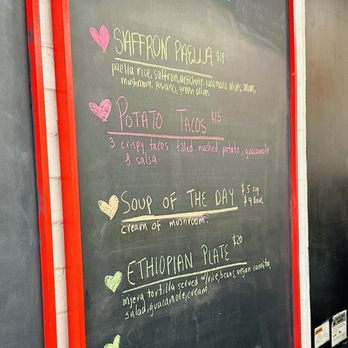 SAFFRON PAELLA $18
paella rice, saffron, artichoke, kalamata olives, onion,
mushroom, potatoes, green olives
POTATO TACOS $15
3 crispy tacos filled mashed potato, guacamole
& salsa
SOUP OF THE DAY $5 cup
$9 Bowl
cream of mushroom
ETHIOPIAN PLATE $20
injera tortilla served w/rice, beans, vegan
salad, guacamole, cream